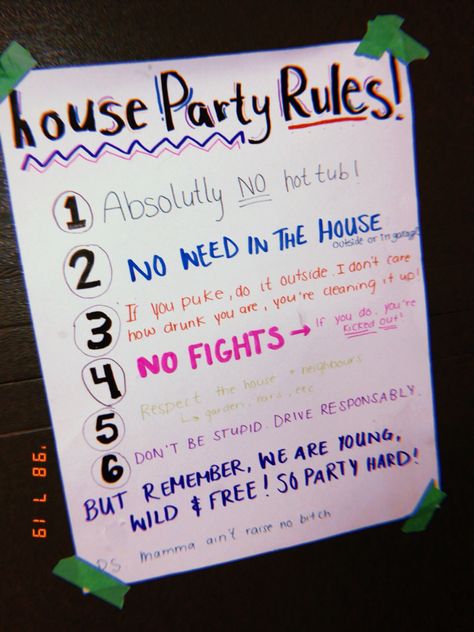 house Party Rules!
1 Absolutly NO hot tub!
2 NO WEED IN THE HOUSE
outside or in garage!
3 If you puke, do it outside. I don't care
how drunk you are, you're cleaning it up!
4 NO FIGHTS → If you do, you're
kicked out!
5 Respect the house + neighbours
↳ garden, cars, etc
6 DON'T BE STUPID. DRIVE RESPONSABLY.
BUT REMEMBER, WE ARE YOUNG,
WILD & FREE! SO PARTY HARD!
PS mamma ain't raise no bitch
'98 7 19